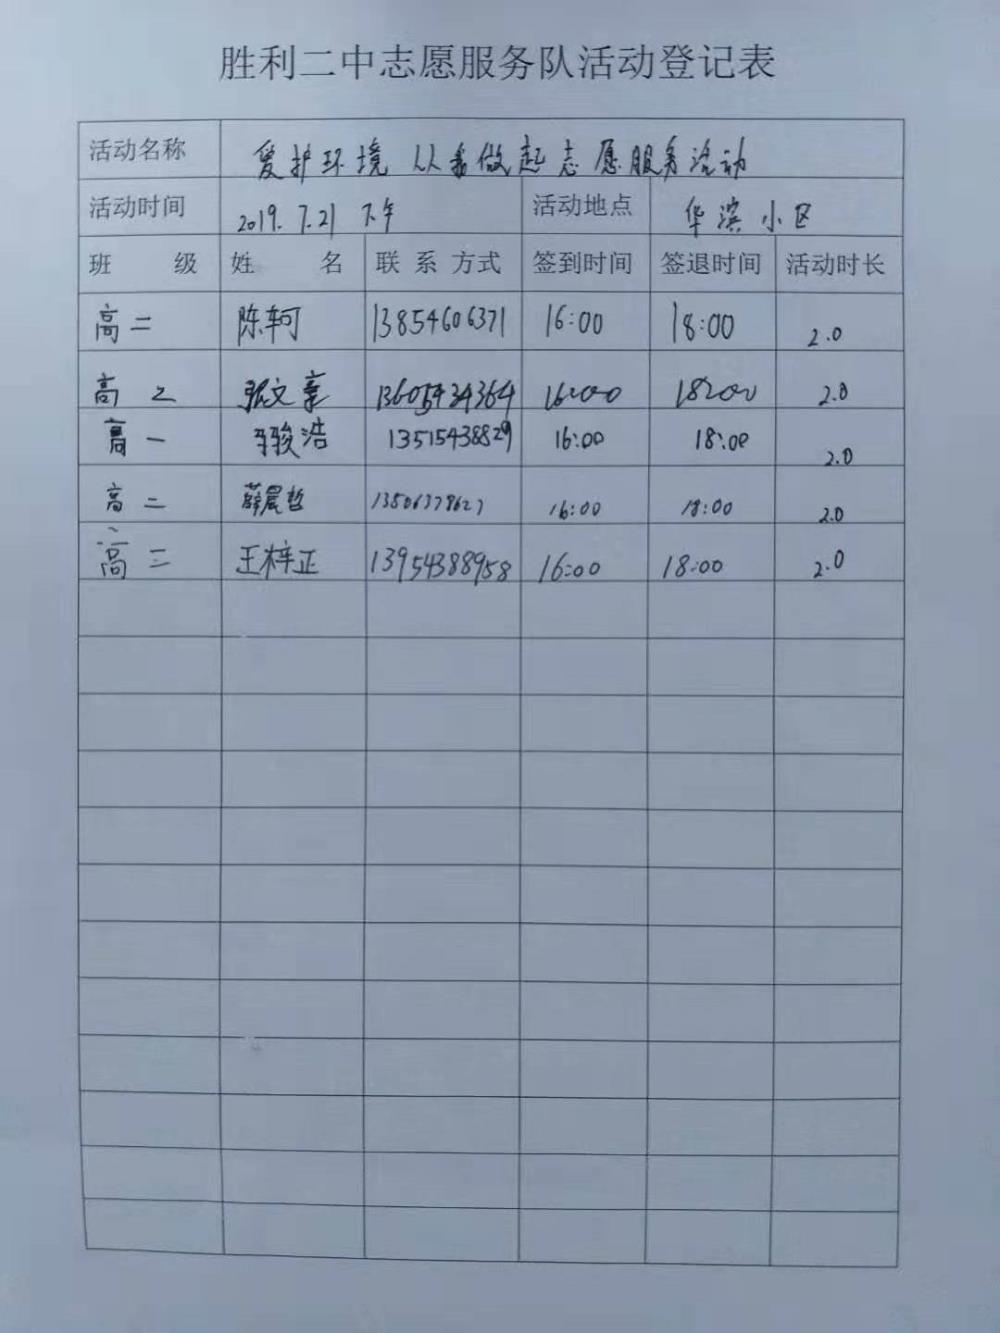 胜利二中志愿服务队活动登记表
活动名称 爱护环境 从我做起志愿服务活动
活动时间 2019.7.21 下午 活动地点 华滨小区
班 级 姓 名 联系方式 签到时间 签退时间 活动时长
高二 陈轲 13854606371 16:00 18:00 2.0
高二 张文豪 13605434364 16:00 18:00 2.0
高一 骏浩 13515438829 16:00 18:00 2.0
高二 薛晨哲 16:00 18:00 2.0
高二 王梓正 13954388958 16:00 18:00 2.0